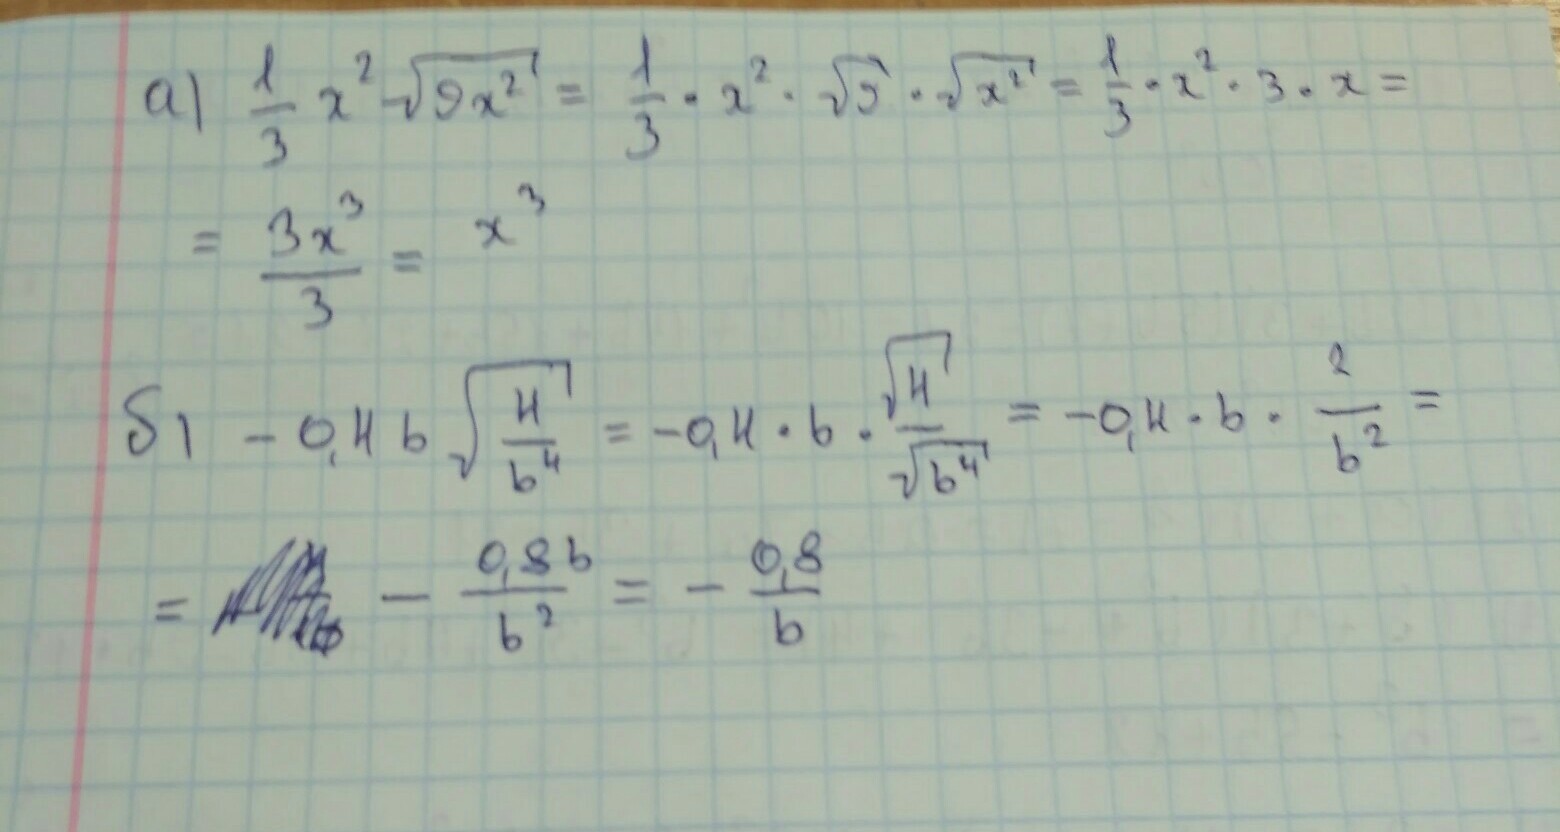 а) 1/3 x² √(9x²) = 1/3 · x² · √9 · √(x²) = 1/3 · x² · 3 · x =
= 3x³/3 = x³
б) - 0,4 b √(4/b⁴) = -0,4 · b · √4/√(b⁴) = -0,4 · b · 2/b² =
= - 0,8b/b² = - 0,8/b